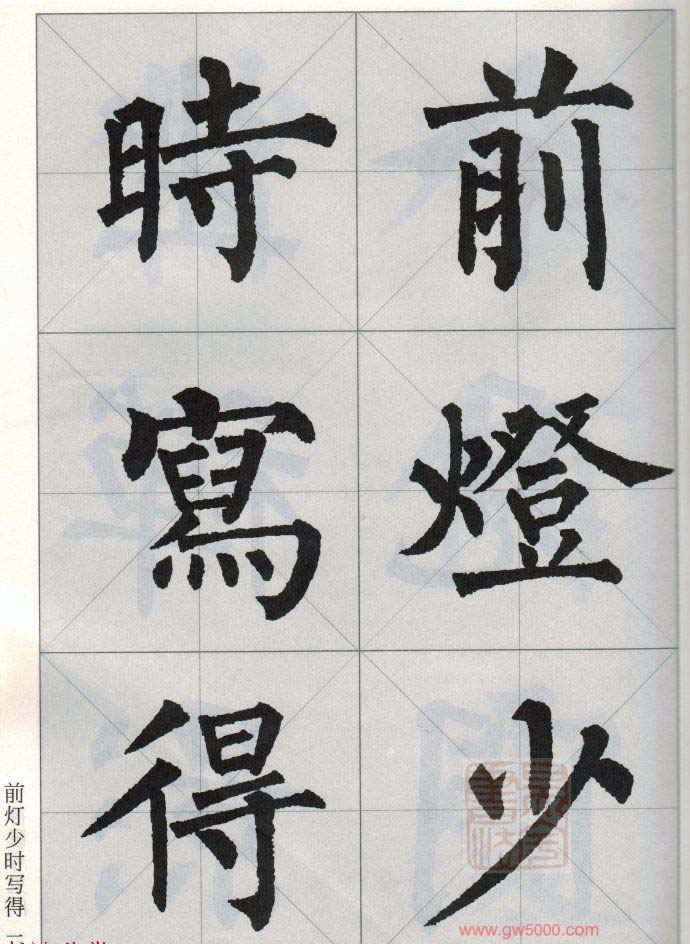 前燈少
時寫得
前灯少时写得
www.gw5000.com